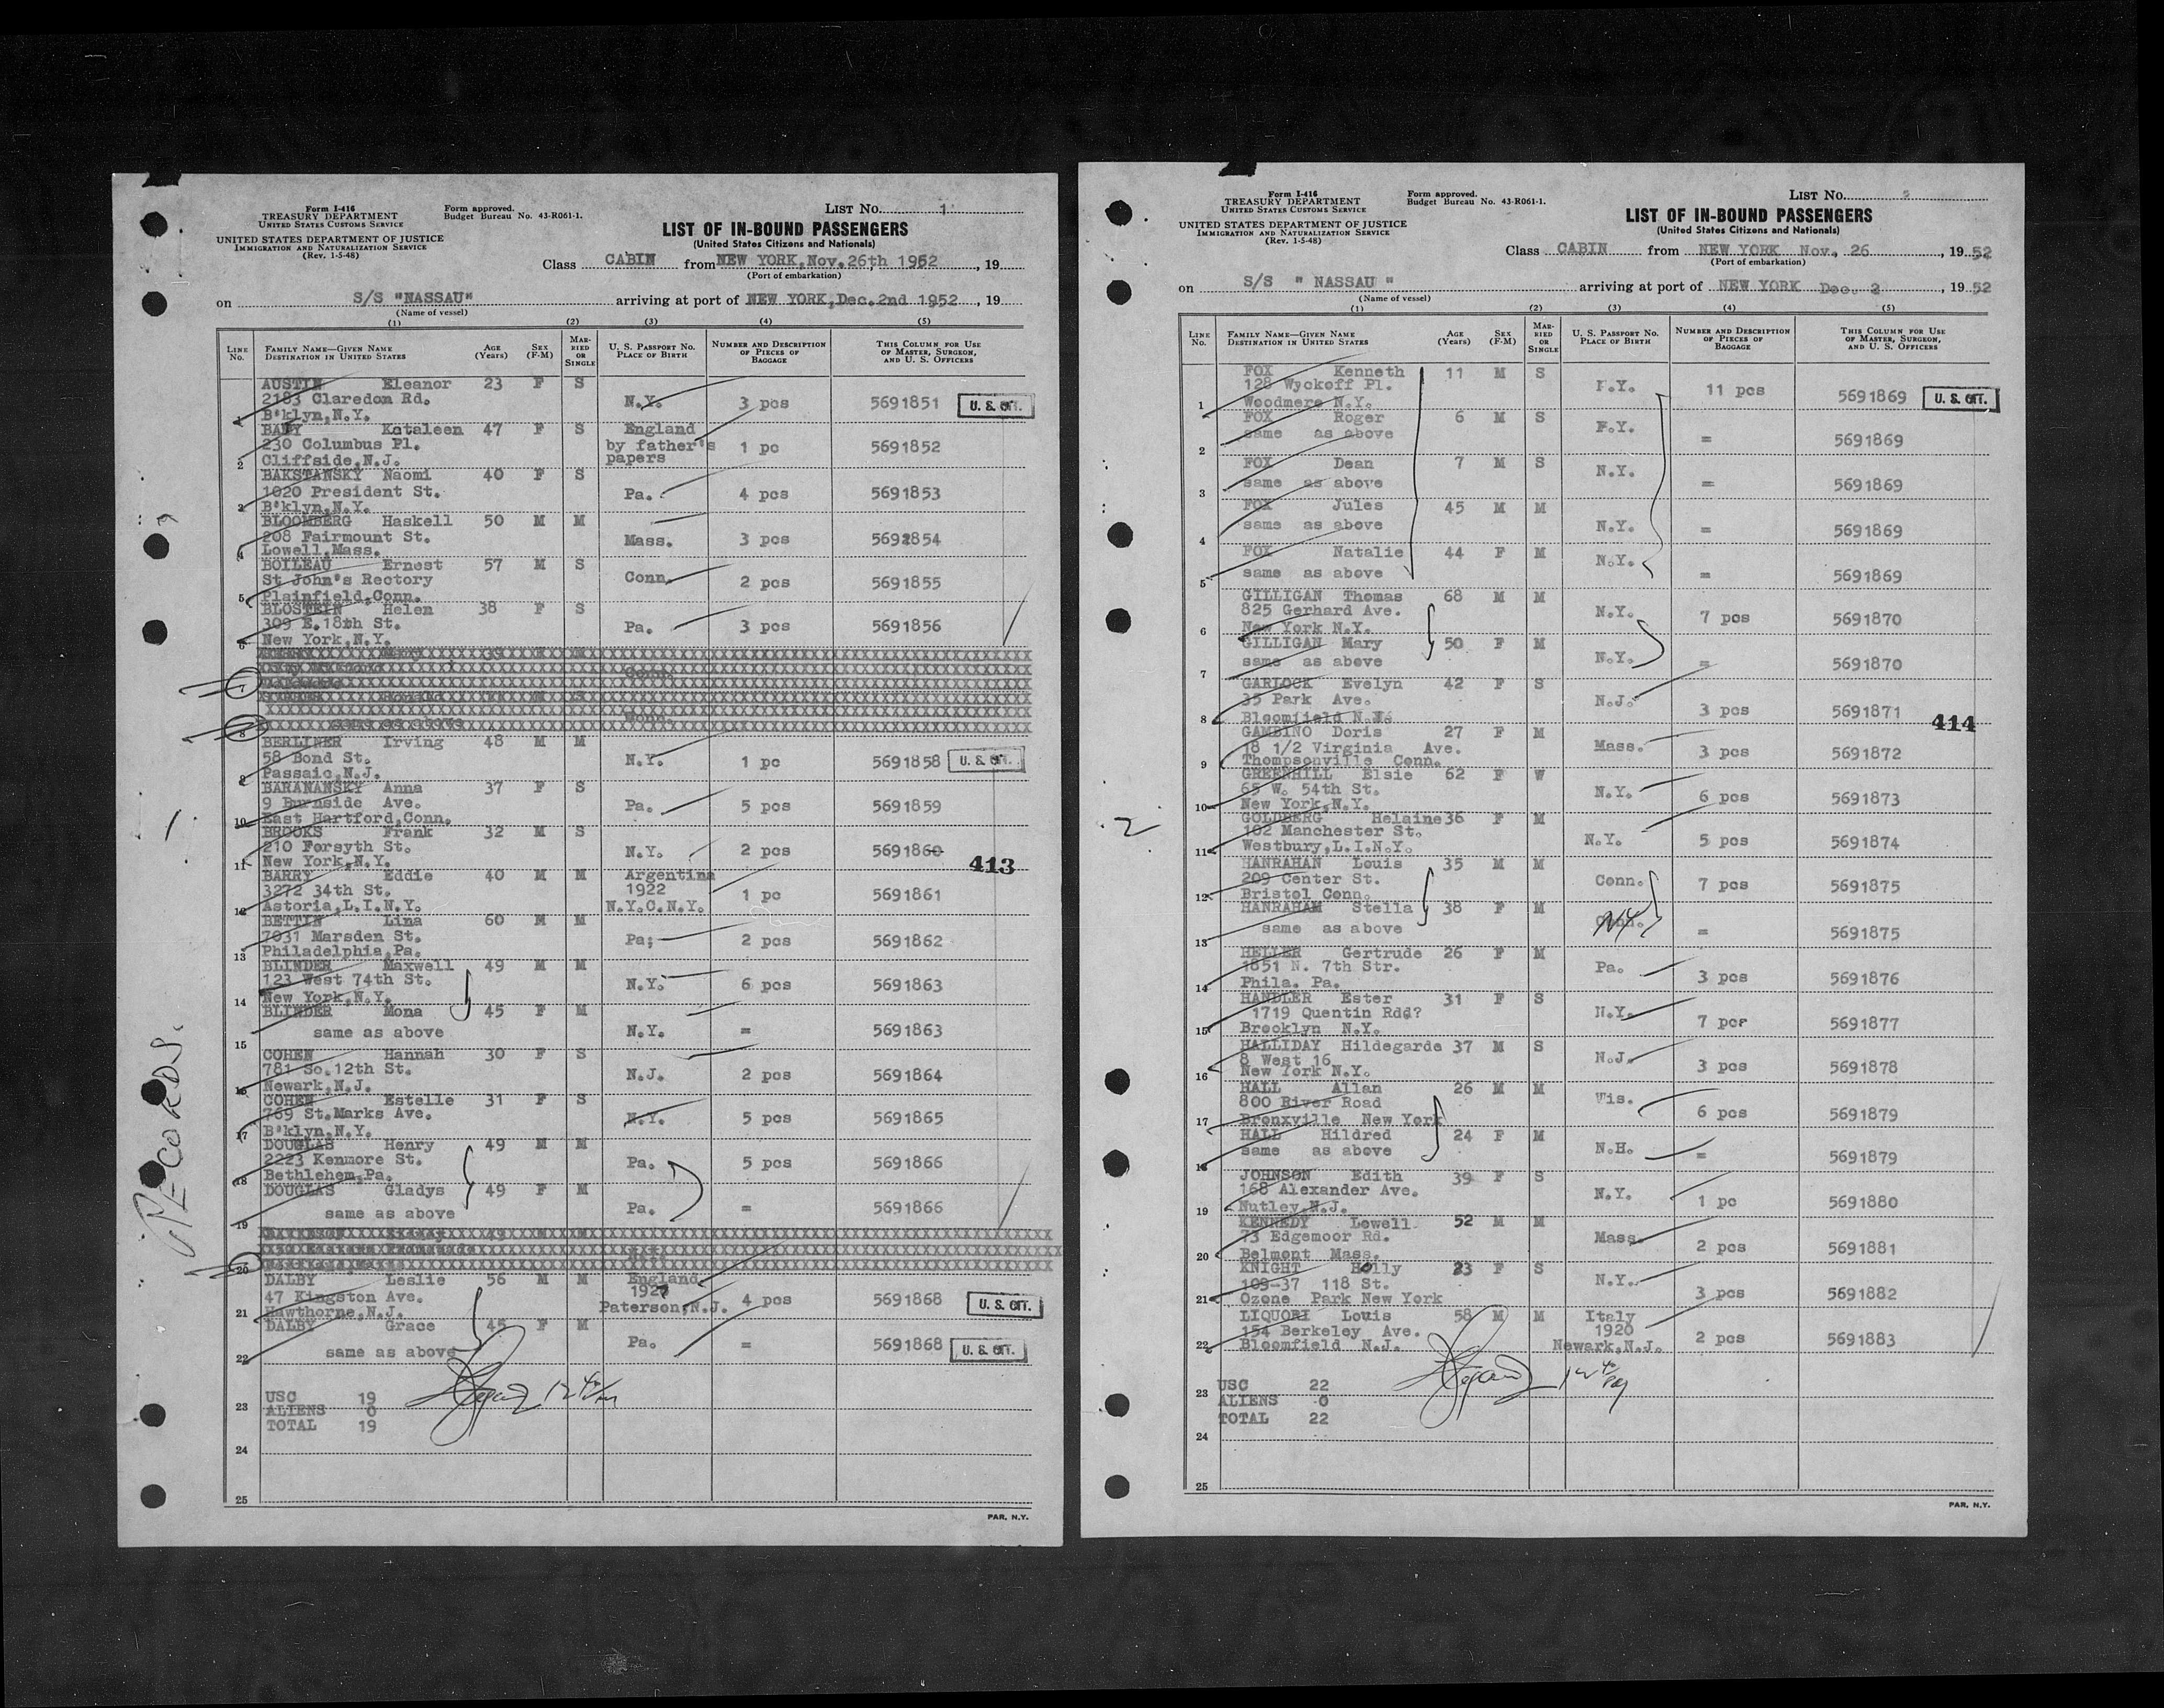 Form I-416
TREASURY DEPARTMENT
UNITED STATES CUSTOMS SERVICE
UNITED STATES DEPARTMENT OF JUSTICE
IMMIGRATION AND NATURALIZATION SERVICE
(Rev. 1-5-48)
Form approved.
Budget Bureau No. 43-R061-1.
LIST NO. 1
LIST OF IN-BOUND PASSENGERS
(United States Citizens and Nationals)
Class CABIN from NEW YORK, Nov. 26th 1952, 19
(Port of embarkation)
on S/S "NASSAU" arriving at port of NEW YORK, Dec. 2nd 1952, 19
(Name of vessel)
(1) (2) (3) (4) (5)
LINE No. FAMILY NAME—GIVEN NAME DESTINATION IN UNITED STATES AGE (Years) SEX (F-M) MARRIED OR SINGLE U. S. PASSPORT No. PLACE OF BIRTH NUMBER AND DESCRIPTION OF PIECES OF BAGGAGE THIS COLUMN FOR USE OF MASTER, SURGEON, AND U. S. OFFICERS
AUSTIN Eleanor 23 F S
2183 Claredon Rd. N.Y. 3 pcs 5691851 U. S. CIT.
1 B'klyn,N.Y.
BADY Kataleen 47 F S England
230 Columbus Pl. by father's 1 pc 5691852
2 Cliffside,N.J. papers
BAKSTANSKY Naomi 40 F S
1020 President St. Pa. 4 pcs 5691853
3 B'klyn,N.Y.
BLOOMBERG Haskell 50 M M
208 Fairmount St. Mass. 3 pcs 5692854
4 Lowell,Mass.
BOILEAU Ernest 57 M S
St John's Rectory Conn. 2 pcs 5691855
5 Plainfield,Conn.
BLOSTEIN Helen 38 F S
309 E.18th St. Pa. 3 pcs 5691856
6 New York,N.Y.
7
8 same as above
BERLINER Irving 48 M M
58 Bond St. N.Y. 1 pc 5691858 U. S. CIT.
9 Passaic,N.J.
BARANANSKY Anna 37 F S
9 Burnside Ave. Pa. 5 pcs 5691859
10 East Hartford,Conn.
BROOKS Frank 32 M S
210 Forsyth St. N.Y. 2 pcs 5691860
11 New York,N.Y. 413
BARRY Eddie 40 M M Argentina
3272 34th St. 1922 1 pc 5691861
12 Astoria,L.I.N.Y. N.Y.C.N.Y.
BETTIN Lina 60 M M
7031 Marsden St. Pa; 2 pcs 5691862
13 Philadelphia,Pa.
BLINDER Maxwell 49 M M
123 West 74th St. N.Y. 6 pcs 5691863
14 New York,N.Y.
BLINDER Mona 45 F M
same as above N.Y. = 5691863
15
COHEN Hannah 30 F S
781 So.12th St. N.J. 2 pcs 5691864
16 Newark,N.J.
COHEN Estelle 31 F S
769 St.Marks Ave. N.Y. 5 pcs 5691865
17 B'klyn,N.Y.
DOUGLAS Henry 49 M M
2223 Kenmore St. Pa. 5 pcs 5691866
18 Bethlehem,Pa.
DOUGLAS Gladys 49 F M
same as above Pa. = 5691866
19
20
DALBY Leslie 56 M M England
47 Kingston Ave. 1927 4 pcs 5691868 U. S. CIT.
21 Hawthorne,N.J. Paterson,N.J.
DALBY Grace 45 F M
same as above Pa. = 5691868 U. S. CIT.
22
USC 19
23 ALIENS 0
TOTAL 19
24
25
PAR. N.Y.
RECORDS.
1
Form I-416
TREASURY DEPARTMENT
UNITED STATES CUSTOMS SERVICE
UNITED STATES DEPARTMENT OF JUSTICE
IMMIGRATION AND NATURALIZATION SERVICE
(Rev. 1-5-48)
Form approved.
Budget Bureau No. 43-R061-1.
LIST NO.
LIST OF IN-BOUND PASSENGERS
(United States Citizens and Nationals)
Class CABIN from NEW YORK Nov. 26, 1952
(Port of embarkation)
on S/S " NASSAU " arriving at port of NEW YORK Dec. 2, 1952
(Name of vessel)
(1) (2) (3) (4) (5)
LINE No. FAMILY NAME—GIVEN NAME DESTINATION IN UNITED STATES AGE (Years) SEX (F-M) MARRIED OR SINGLE U. S. PASSPORT No. PLACE OF BIRTH NUMBER AND DESCRIPTION OF PIECES OF BAGGAGE THIS COLUMN FOR USE OF MASTER, SURGEON, AND U. S. OFFICERS
FOX Kenneth 11 M S
128 Wyckoff Pl. N.Y. 11 pcs 5691869 U. S. CIT.
1 Woodmere N.Y.
FOX Roger 6 M S
same as above N.Y. = 5691869
2
FOX Dean 7 M S
same as above N.Y. = 5691869
3
FOX Jules 45 M M
same as above N.Y. = 5691869
4
FOX Natalie 44 F M
same as above N.Y. = 5691869
5
GILLIGAN Thomas 68 M M
825 Gerhard Ave. N.Y. 7 pcs 5691870
6 New York N.Y.
GILLIGAN Mary 50 F M
same as above N.Y. = 5691870
7
GARLOCK Evelyn 42 F S
35 Park Ave. N.J. 3 pcs 5691871
8 Bloomfield N.J. 414
GAMBINO Doris 27 F M
18 1/2 Virginia Ave. Mass. 3 pcs 5691872
9 Thompsonville Conn.
GREENHILL Elsie 62 F W
65 W. 54th St. N.Y. 6 pcs 5691873
10 New York,N.Y.
GOLDBERG Helaine 36 F M
102 Manchester St. N.Y. 5 pcs 5691874
11 Westbury,L.I.N.Y.
HANRAHAN Louis 35 M M
209 Center St. Conn. 7 pcs 5691875
12 Bristol Conn.
HANRAHAM Stella 38 F M
same as above Conn. NY = 5691875
13
HELLER Gertrude 26 F M
1851 N. 7th Str. Pa. 3 pcs 5691876
14 Phila. Pa.
HANDLER Ester 31 F S
1719 Quentin Rdd? N.Y. 7 pcr 5691877
15 Brooklyn N.Y.
HALLIDAY Hildegarde 37 M S
8 West 16 N.J. 3 pcs 5691878
16 New York N.Y.
HALL Allan 26 M M
800 River Road Wis. 6 pcs 5691879
17 Bronxville New York
HALL Hildred 24 F M
same as above N.H. = 5691879
18
JOHNSON Edith 39 F S
168 Alexander Ave. N.Y. 1 pc 5691880
19 Nutley N.J.
KENNEDY Lowell 52 M M
73 Edgemoor Rd. Mass. 2 pcs 5691881
20 Belmont Mass.
KNIGHT Holly 23 F S
109-37 118 St. N.Y. 3 pcs 5691882
21 Ozone Park New York
LIQUORI Louis 58 M M Italy
154 Berkeley Ave. 1920 2 pcs 5691883
22 Bloomfield N.J. Newark,N.J.
USC 22
23 ALIENS 0
TOTAL 22
24
25
PAR. N.Y.
2